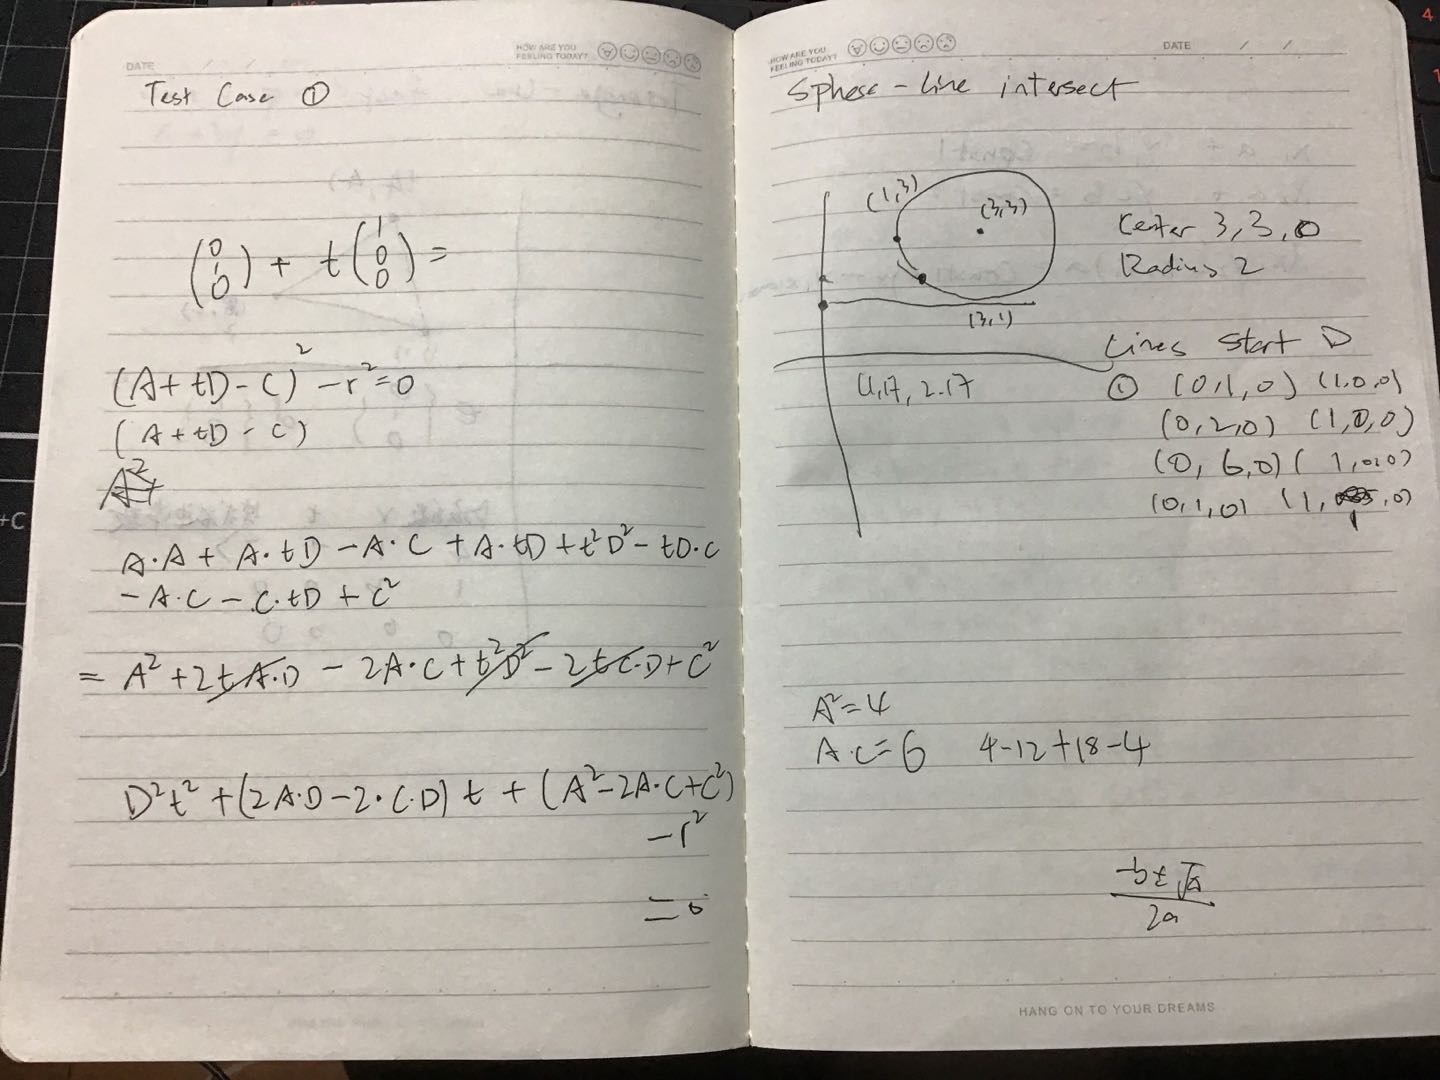 DATE / /
HOW ARE YOU
FEELING TODAY?
Test Case ①
(0 1 0) + t (1 0 0) =
(A + tD - C)² - r² = 0
(A + tD - C)
A·A + A·tD - A·C + A·tD + t²D² - tD·C
- A·C - C·tD + C²
= A² + 2tA·D - 2A·C + t²D² - 2tC·D + C²
D²t² + (2A·D - 2·C·D) t + (A² - 2A·C + C²)
- r²
= 0
HOW ARE YOU
FEELING TODAY?
DATE / /
Sphere - Line intersect
(1,3)
(3,3)
Center 3, 3, 0
Radius 2
(3,1)
Lines Start D
4.17, 2.17
① (0,1,0) (1,0,0)
(0,2,0) (1,0,0)
(0,6,0) (1,0,0)
(0,1,0) (1,1,0)
A² = 4
A·C = 6 4-12+18-4
-b±√
2a
HANG ON TO YOUR DREAMS
4
+C